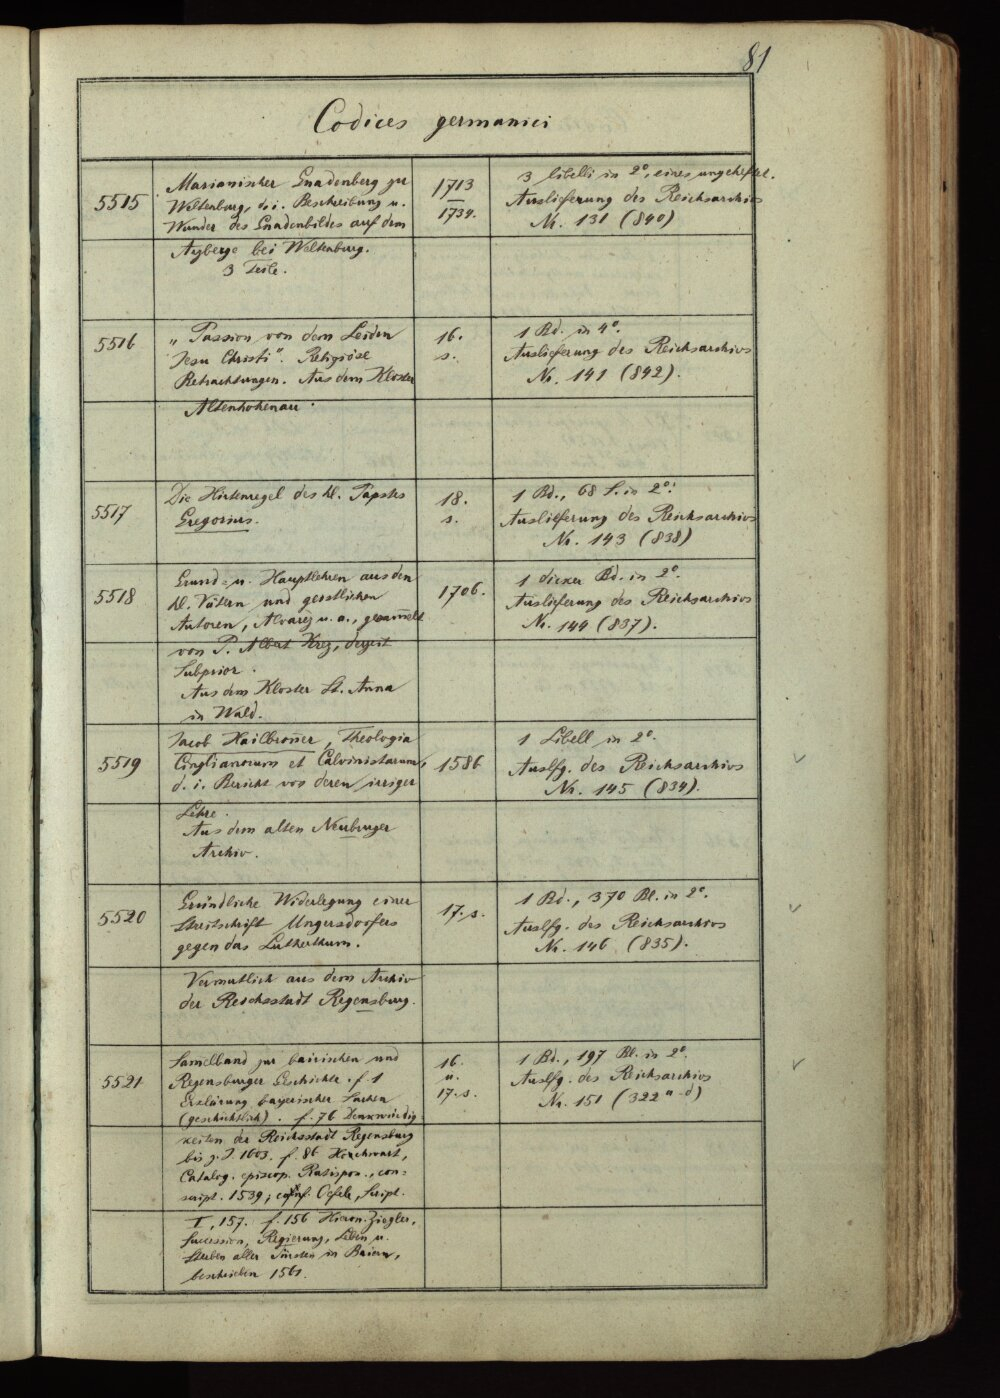 81
Codices germanici
5515
Marianischer Gnadenberg zu
Weltenburg, d. i. Beschreibung u.
Wunder des Gnadenbildes auf dem
Azberge bei Weltenburg.
3 Teile.
1713
—
1734.
3 libelli in 2°, eines ungeheftet.
Auslieferung des Reichsarchivs
Nr. 131 (840)
5516
„Passion von dem Leiden
Jesu Christi". Religiöse
Betrachtungen. Aus dem Kloster
Altenhohenau.
16.
s.
1 Bd. in 4°.
Auslieferung des Reichsarchivs
Nr. 141 (842).
5517
Die Hirtenregel des hl. Papstes
Gregorius.
18.
s.
1 Bd., 68 f. in 2°.
Auslieferung des Reichsarchivs
Nr. 143 (838)
5518
Grund= u. Hauptlehren aus den
hl. Vätern und geistlichen
Autoren, Alvarez u. a., gesam̄elt
von P. Albert Krez, derzeit
Subprior.
Aus dem Kloster St. Anna
in Wald.
1706.
1 dicker Bd. in 2°.
Auslieferung des Reichsarchivs
Nr. 144 (837).
5519
Jacob Hailbron̄er, Theologia
Cinglianorum et Calvinistarum,
d. i. Bericht von deren irriger
Lehre.
Aus dem alten Neuburger
Archiv.
1586
1 Libell in 2°.
Auslfg. des Reichsarchivs
Nr. 145 (834).
5520
Gründliche Widerlegung einer
Streitschrift Ungersdorfers
gegen das Lutherthum.
Vermutlich aus dem Archiv
der Reichsstadt Regensburg.
17. s.
1 Bd., 370 Bl. in 2°.
Auslfg. des Reichsarchivs
Nr. 146 (835).
5521
Sam̄elband zur bairischen und
Regensburger Geschichte. f. 1
Erklärung bayerischer Sachen
(geschichtlich). f. 76 Denkwürdig
keiten der Reichsstadt Regensburg
bis z. J. 1603. f. 86 Hochwart,
Catalog. episcop. Ratispon., con=
script. 1539; conf. Oefele, Script.
I, 157. f. 156 Hieron. Ziegler,
Succession, Regierung, Leben u.
Sterben aller Fürsten in Baiern,
beschrieben 1561.
16.
u.
17. s.
1 Bd., 197 Bl. in 2°
Auslfg. des Reichsarchivs
Nr. 151 (322 a-d)